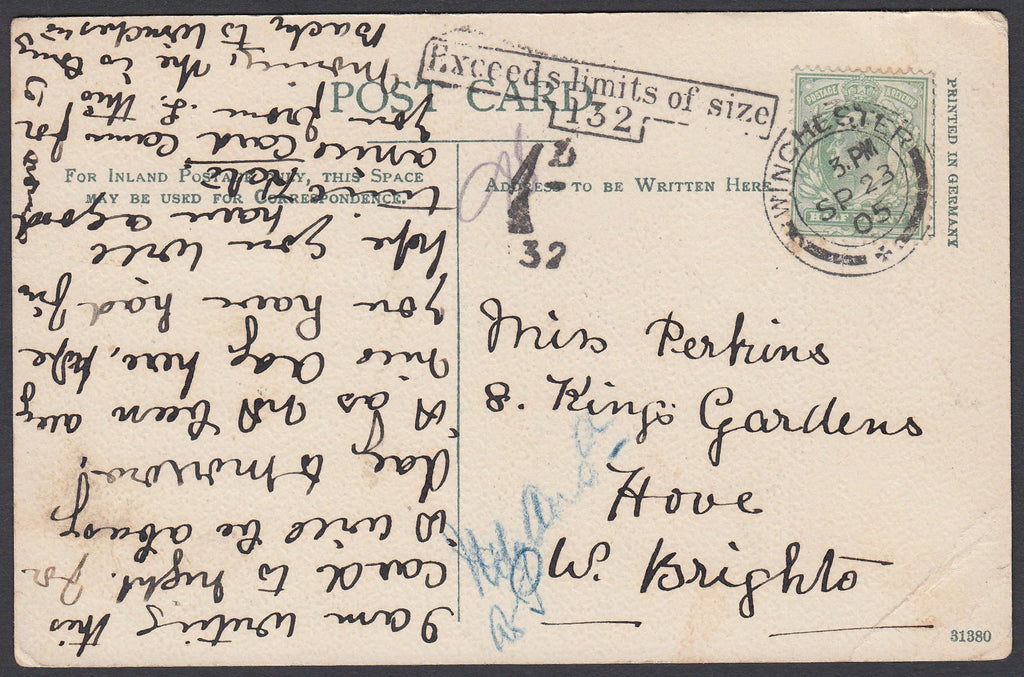 Exceeds limits of size
132
POST CARD.
FOR INLAND POSTAGE ONLY, THIS SPACE
MAY BE USED FOR CORRESPONDENCE.
ADDRESS TO BE WRITTEN HERE.
1D
32
POSTAGE REVENUE
WINCHESTER
3. PM
SP 23
05
PRINTED IN GERMANY
Miss Perkins
8. Kings Gardens
Hove
W. Brighto
31380
I am writing this
card to night. for
it will be a busy
day to morrow!
it as not been a very
nice day here, hope
you have had fin
hope you will
have a good
time
a nice card came for
you from L. this
morning, the
Back to Winchesr